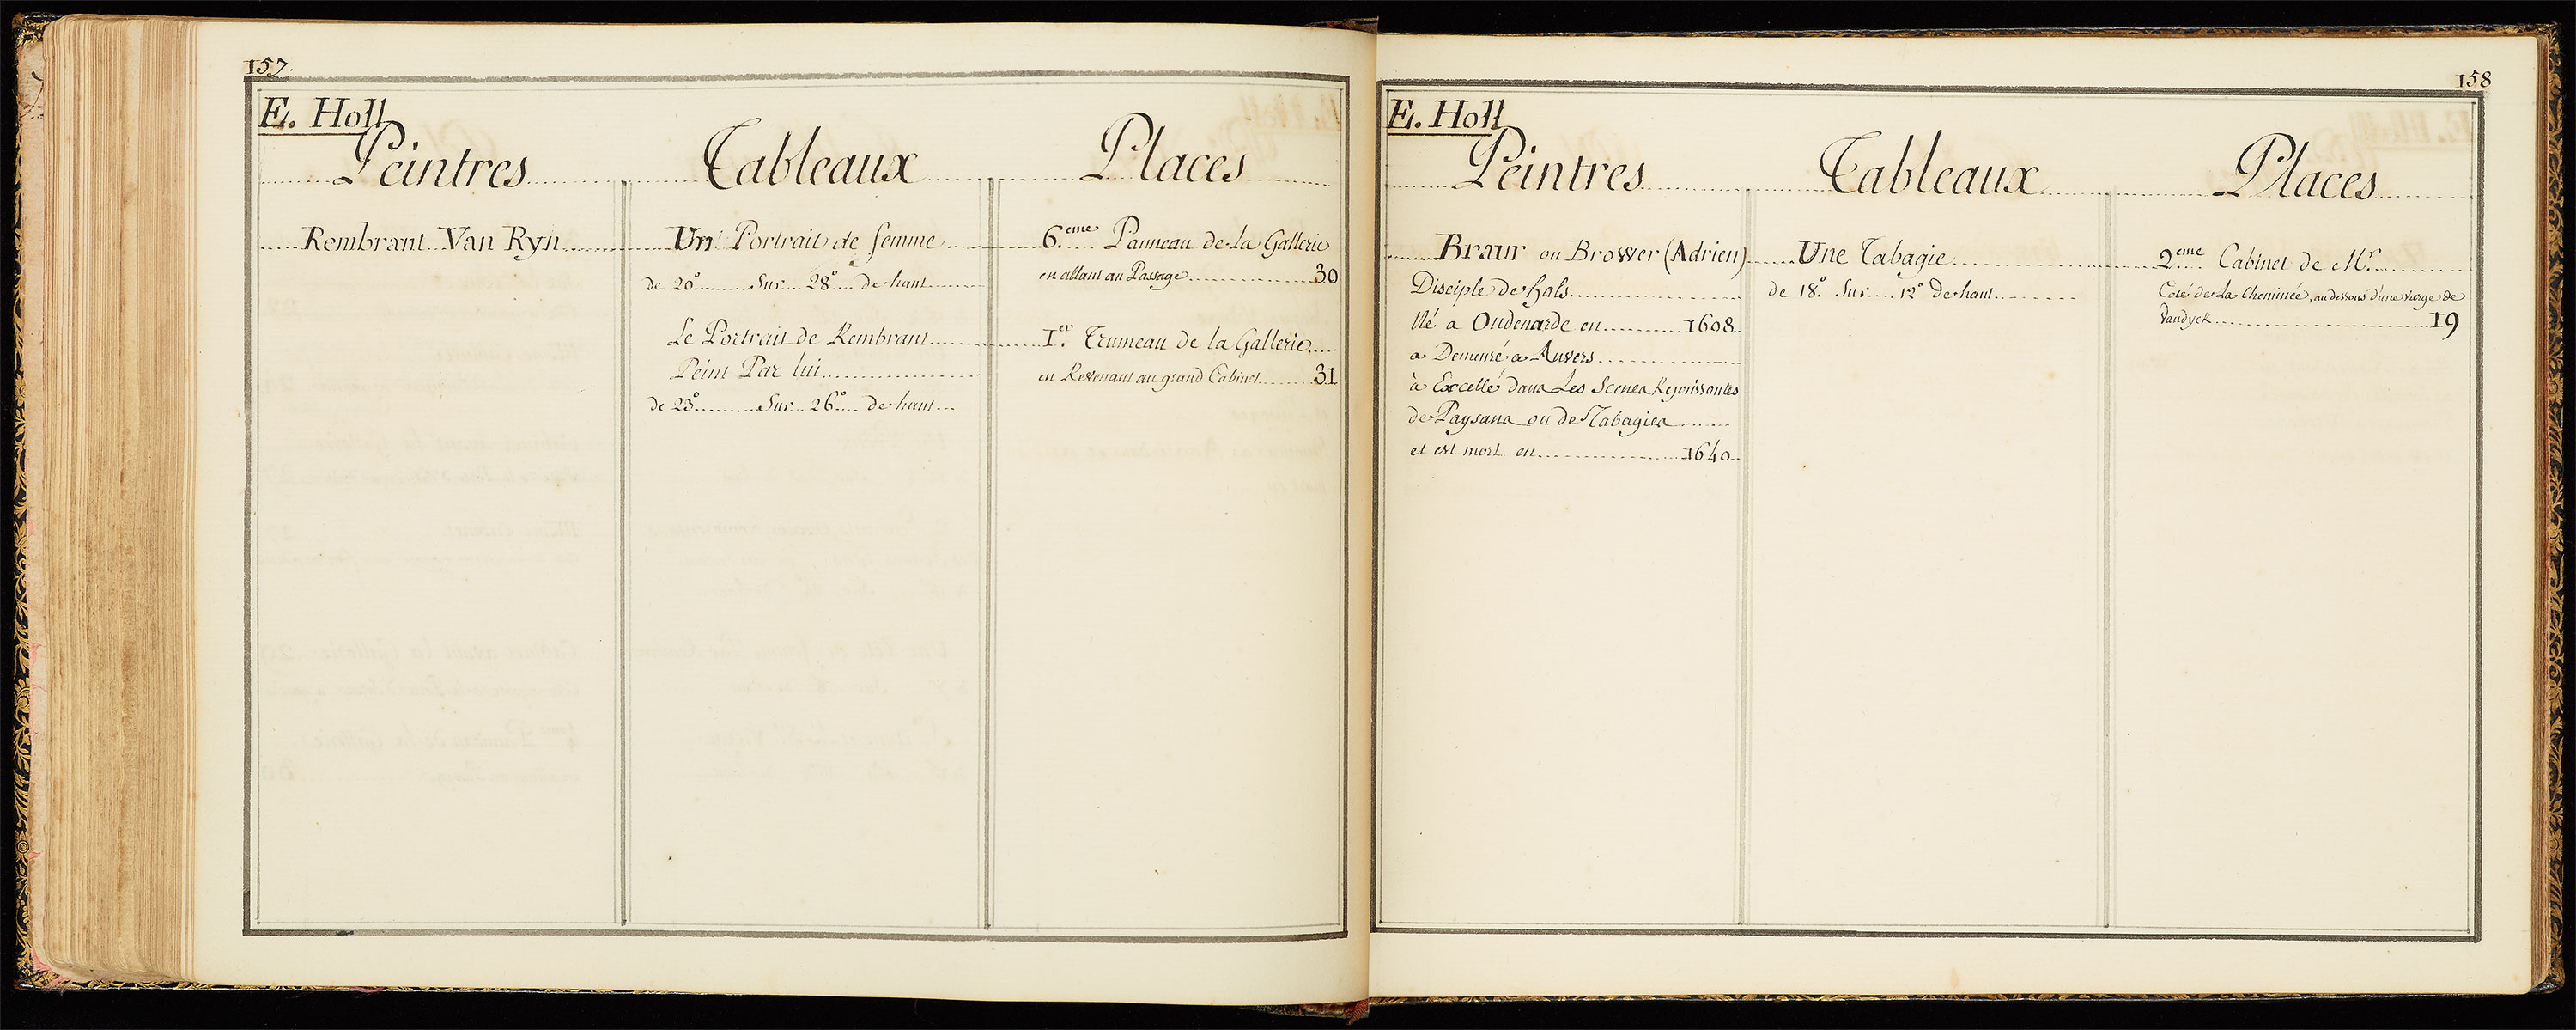 157.
E. Holl
Peintres Tableaux Places
Rembrant Van Ryn Un Portrait de femme 6.eme Panneau de La Gallerie
de 20° Sur 28° de haut en allant au Passage 30
Le Portrait de Rembrant 1.er Trumeau de la Gallerie
Peint Par lui en Revenant au grand Cabinet 31
de 23° Sur 26° de haut
158
E. Holl
Peintres Tableaux Places
Braur ou Brower (Adrien) Une Tabagie 2.eme Cabinet de Mr.
Disciple de hals de 18° Sur 12° De haut Coté de La Cheminée, au dessous d'une vierge de
Né a Oudenarde en 1608 Vandyck 19
a Demeuré a Anvers
à Excellé dans Les Scenes Rejouissantes
de Paysans ou de Tabagies
et est mort en 1640